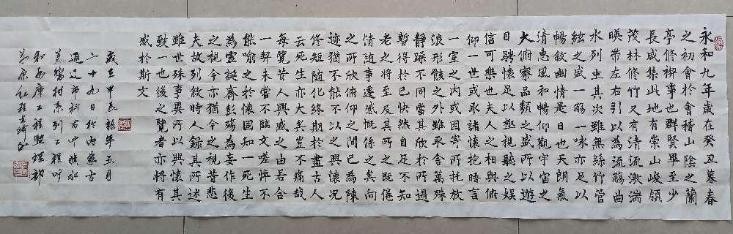 永和九年歲在癸丑暮春
之初會於會稽山陰之蘭
亭修禊事也群賢畢至少
長咸集此地有崇山峻領
茂林修竹又有清流激湍
暎帶左右引以為流觴曲
水列坐其次雖無絲竹管
絃之盛一觴一詠亦足以
暢敘幽情是日也天朗氣
清惠風和暢仰觀宇宙之
大俯察品類之盛所以遊
目騁懷足以極視聽之娛
信可樂也夫人之相與俯
仰一世或取諸懷抱悟言
一室之內或因寄所託放
浪形骸之外雖趣舍萬殊
靜躁不同當其欣於所遇
暫得於己快然自足不知
老之將至及其所之既倦
情隨事遷感慨係之矣向
之所欣俛仰之間已為陳
迹猶不能不以之興懷況
修短隨化終期於盡古人
云死生亦大矣豈不痛哉
每覽昔人興感之由若合
一契未嘗不臨文嗟悼不
能喻之於懷固知一死生
為虛誕齊彭殤為妄作後
之視今亦猶今之視昔悲
夫故列敘時人錄其所述
雖世殊事異所以興懷其
致一也後之覽者亦將有
感於斯文
年五月
二十九日於內蒙古
通遼市